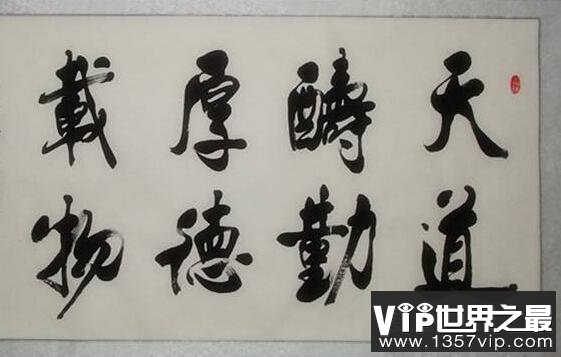 天道
醻勤
厚德
載物
VIP世界之最
www.1357vip.com